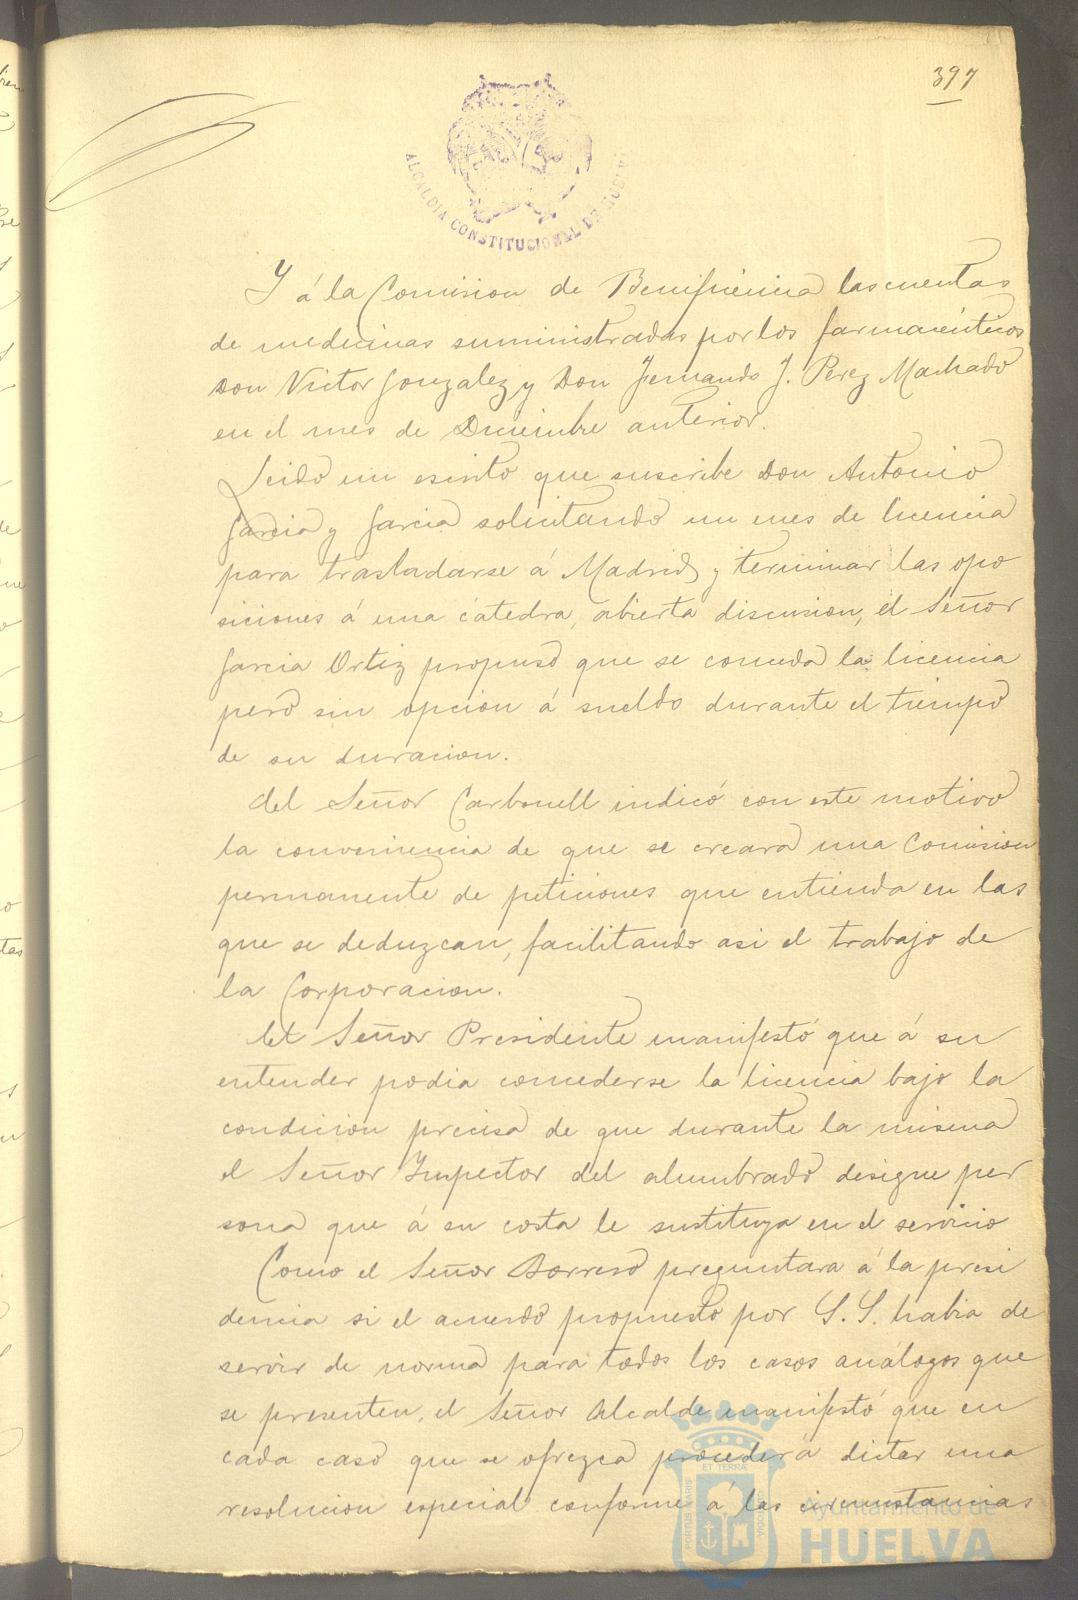 397
ALCALDIA CONSTITUCIONAL DE HUELVA
Y á la Comision de Benificencia las cuentas
de medicinas suministradas por los farmacéuticos
Don Victor Gonzalez y Don Fernando J. Perez Machado
en el mes de Diciembre anterior.
Leido un escrito que suscribe Don Antonio
Garcia y Garcia solicitando un mes de licencia
para trasladarse á Madrid y terminar las opo
siciones á una cátedra, abierta discusion, el Señor
Garcia Ortiz propuso que se conceda la licencia
pero sin opcion á sueldo durante el tiempo
de su duracion.
El Señor Carbonell indicó con este motivo
la conveniencia de que se creara una Comision
permanente de peticiones que entienda en las
que se deduzcan, facilitando asi el trabajo de
la Corporacion.
El Señor Presidente manifestó que á su
entender podia concederse la licencia bajo la
condicion precisa de que durante la misma
el Señor Inspector del alumbrado designe per
sona que á su costa le sustituya en el servicio
Como el Señor Borrero preguntara á la presi
dencia si el acuerdo propuesto por S. S. habia de
servir de norma para todos los casos análogos que
se presenten, el Señor Alcalde manifestó que en
cada caso que se ofrezca procederá dictar una
resolucion especial conforme á las circunstancias
PORTUS MARIS
ET TERRÆ
CUSTODIA
Ayuntamiento de
HUELVA